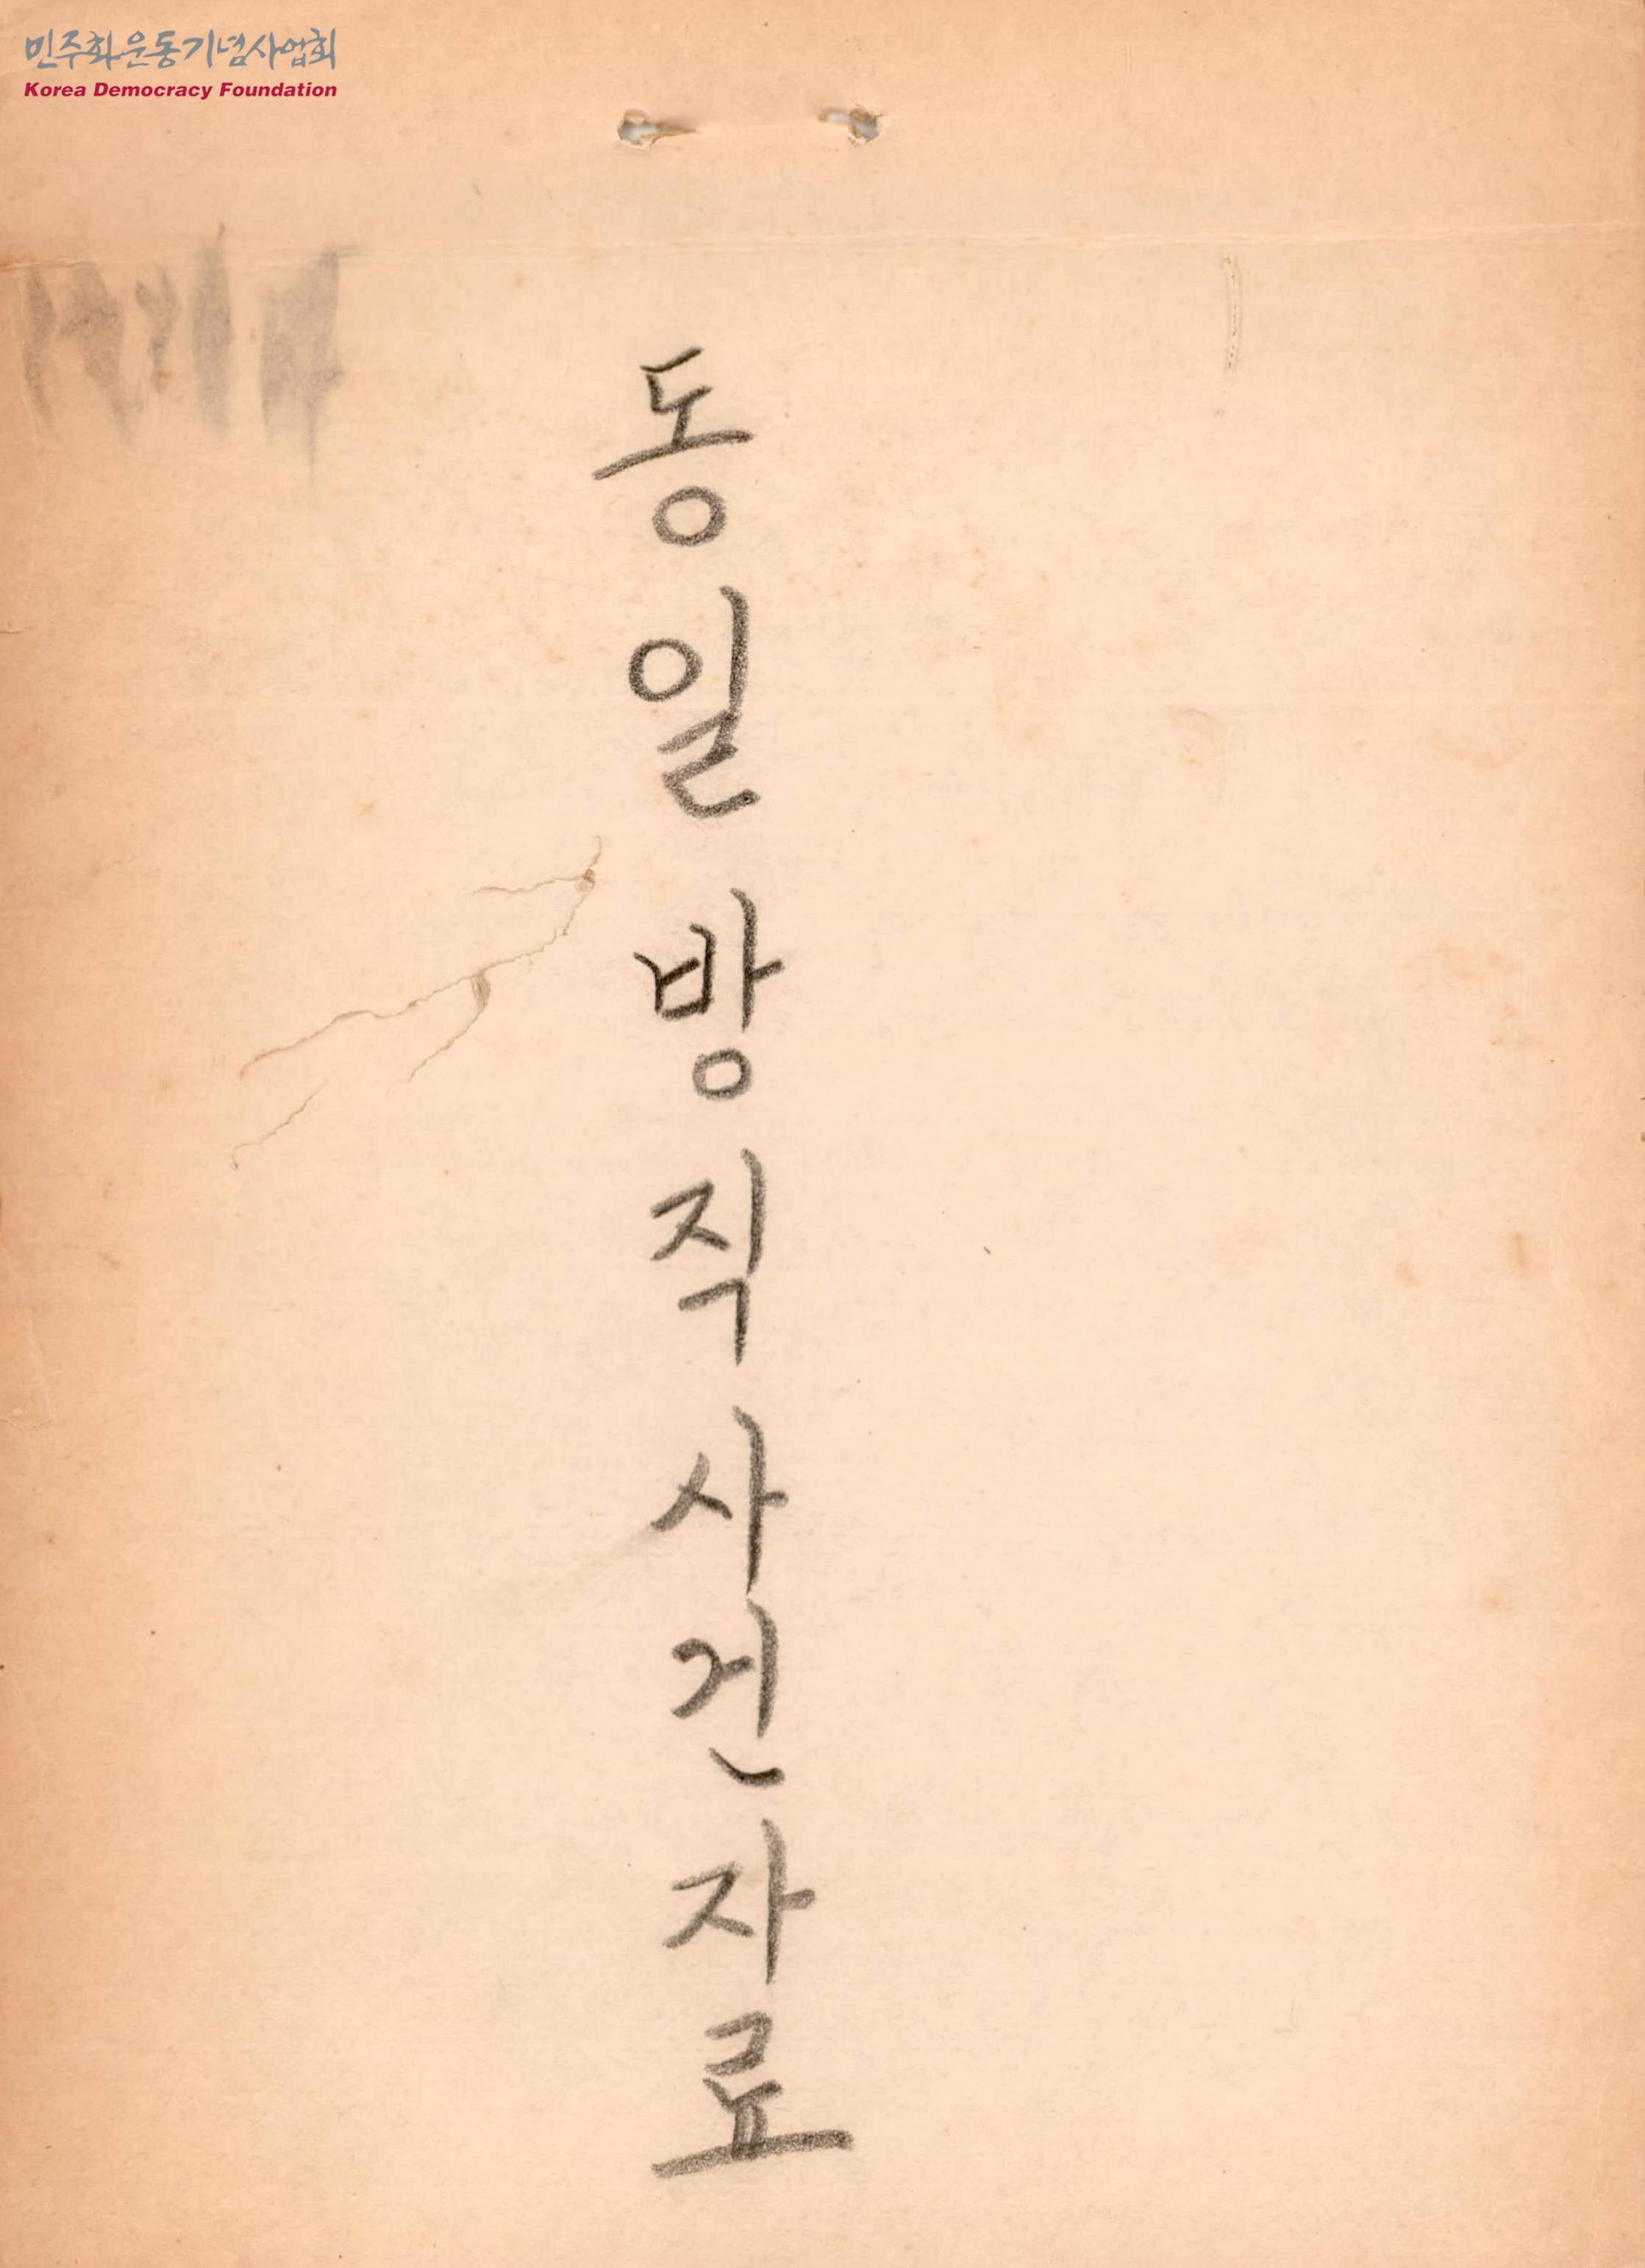 민주화운동기념사업회
Korea Democracy Foundation
동일방직사건자료